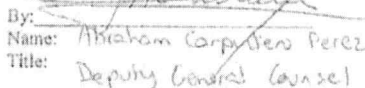 By:
Name: Abraham Perez
Title:
Deputy General Counsel